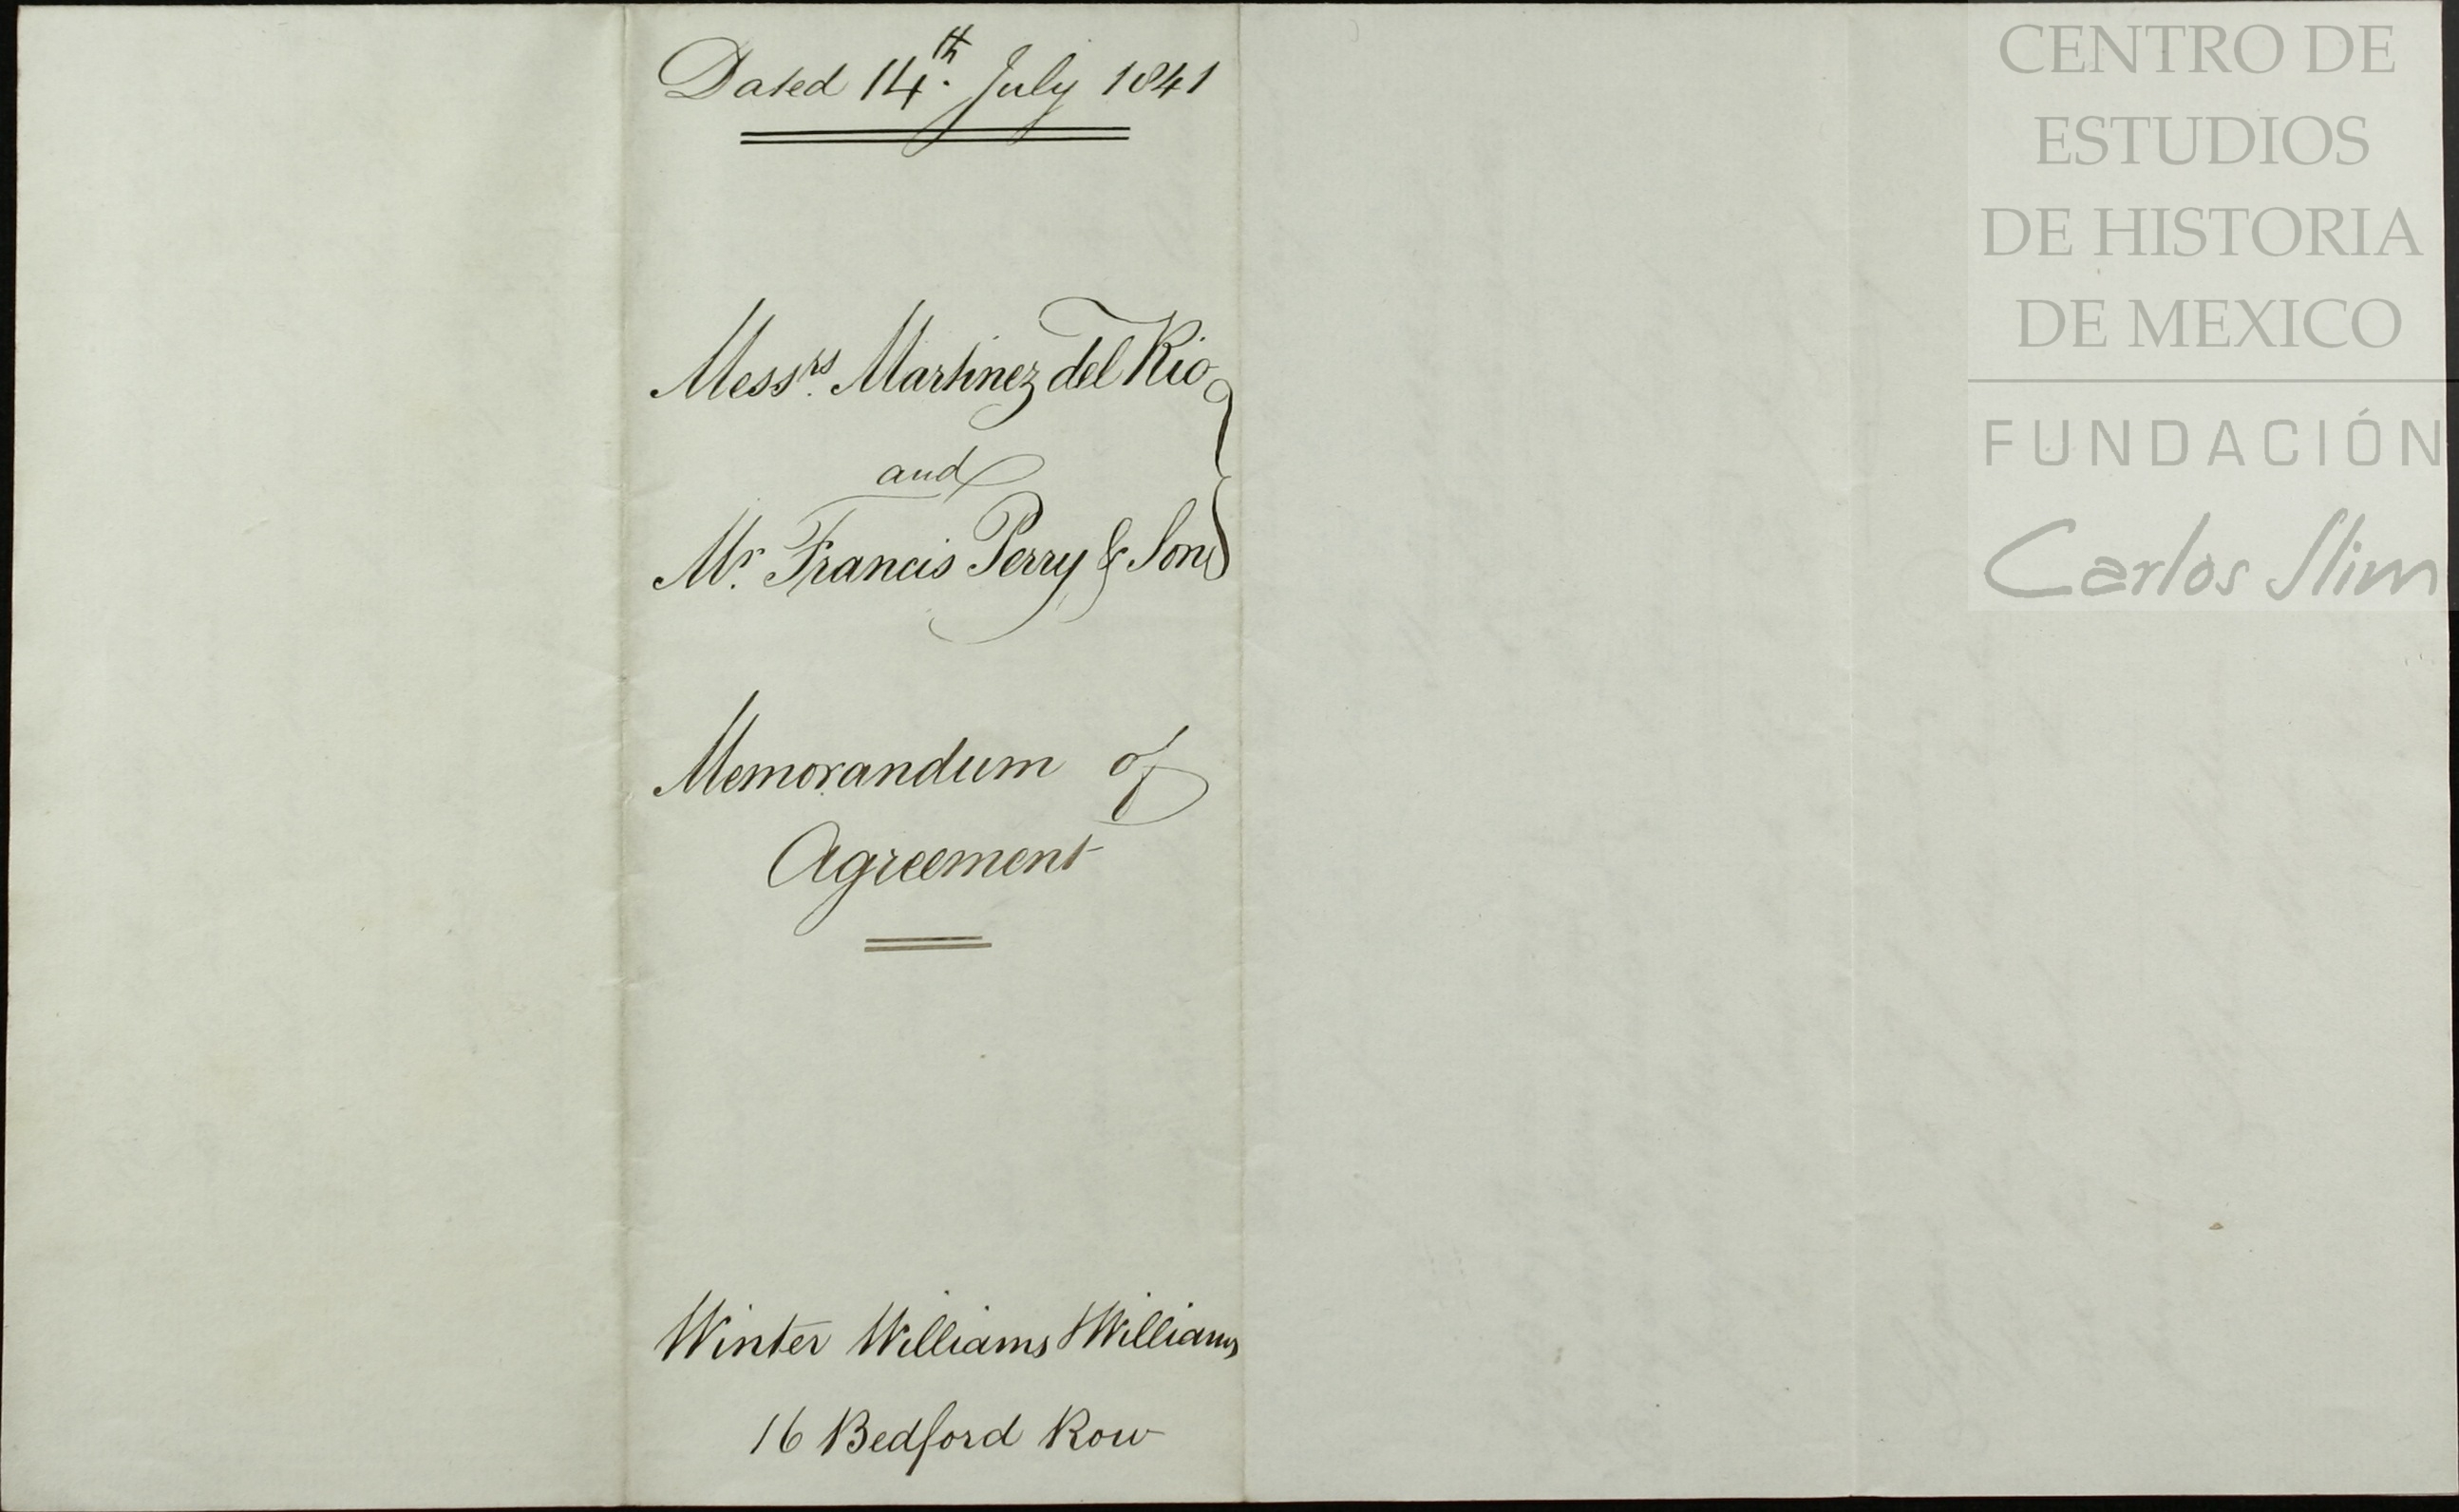 Dated 14th. July 1841
Messrs. Martinez del Rio
and
Mr. Francis Perry & Son
Memorandum of
Agreement
Winter Williams & Williams
16 Bedford Row
CENTRO DE
ESTUDIOS
DE HISTORIA
DE MEXICO
FUNDACIÓN
Carlos Slim